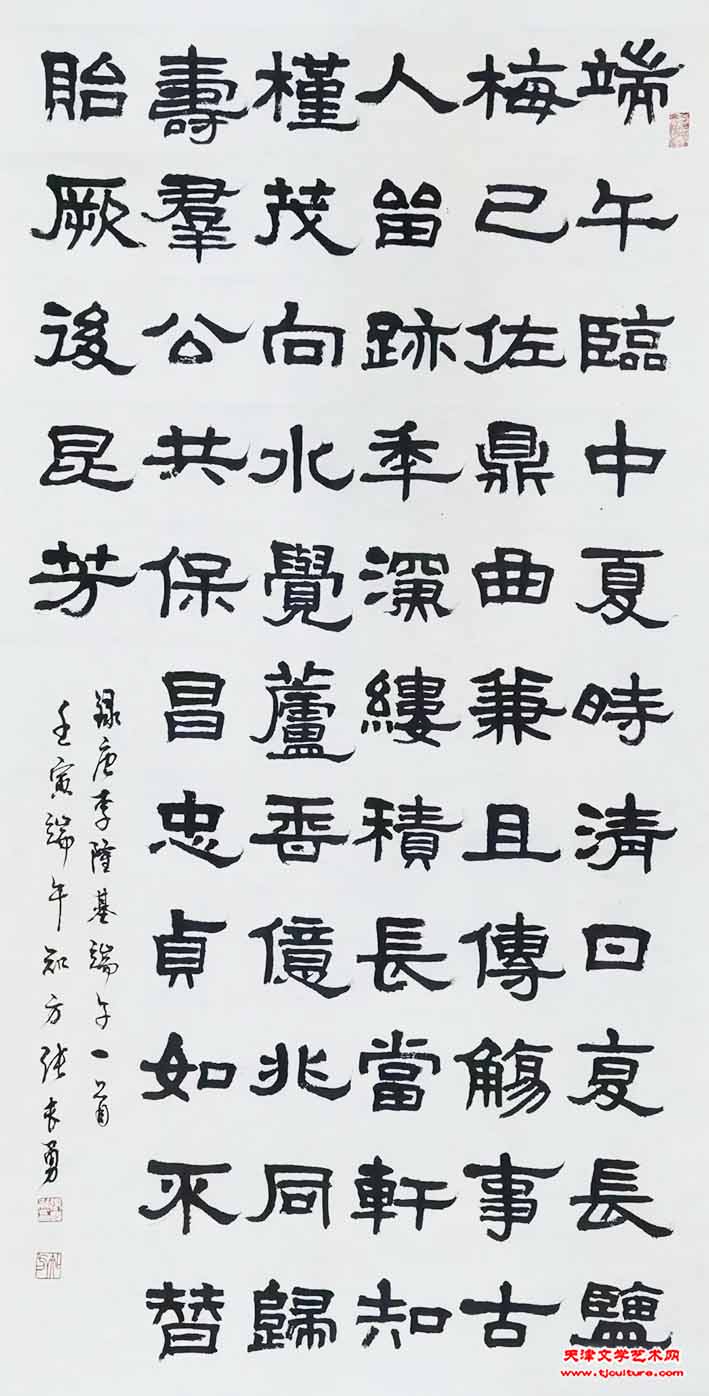 端午臨中夏時清日复長鹽
梅已佐鼎曲兼且傳觴事古
人留跡年深縷積長當軒知
槿茂向水覺蘆香億兆同歸
壽羣公共保昌忠貞如不替
貽厥後昆芳
録唐李隆基端午一首
壬寅端午知方张长勇
天津文学艺术网
www.tjculture.com